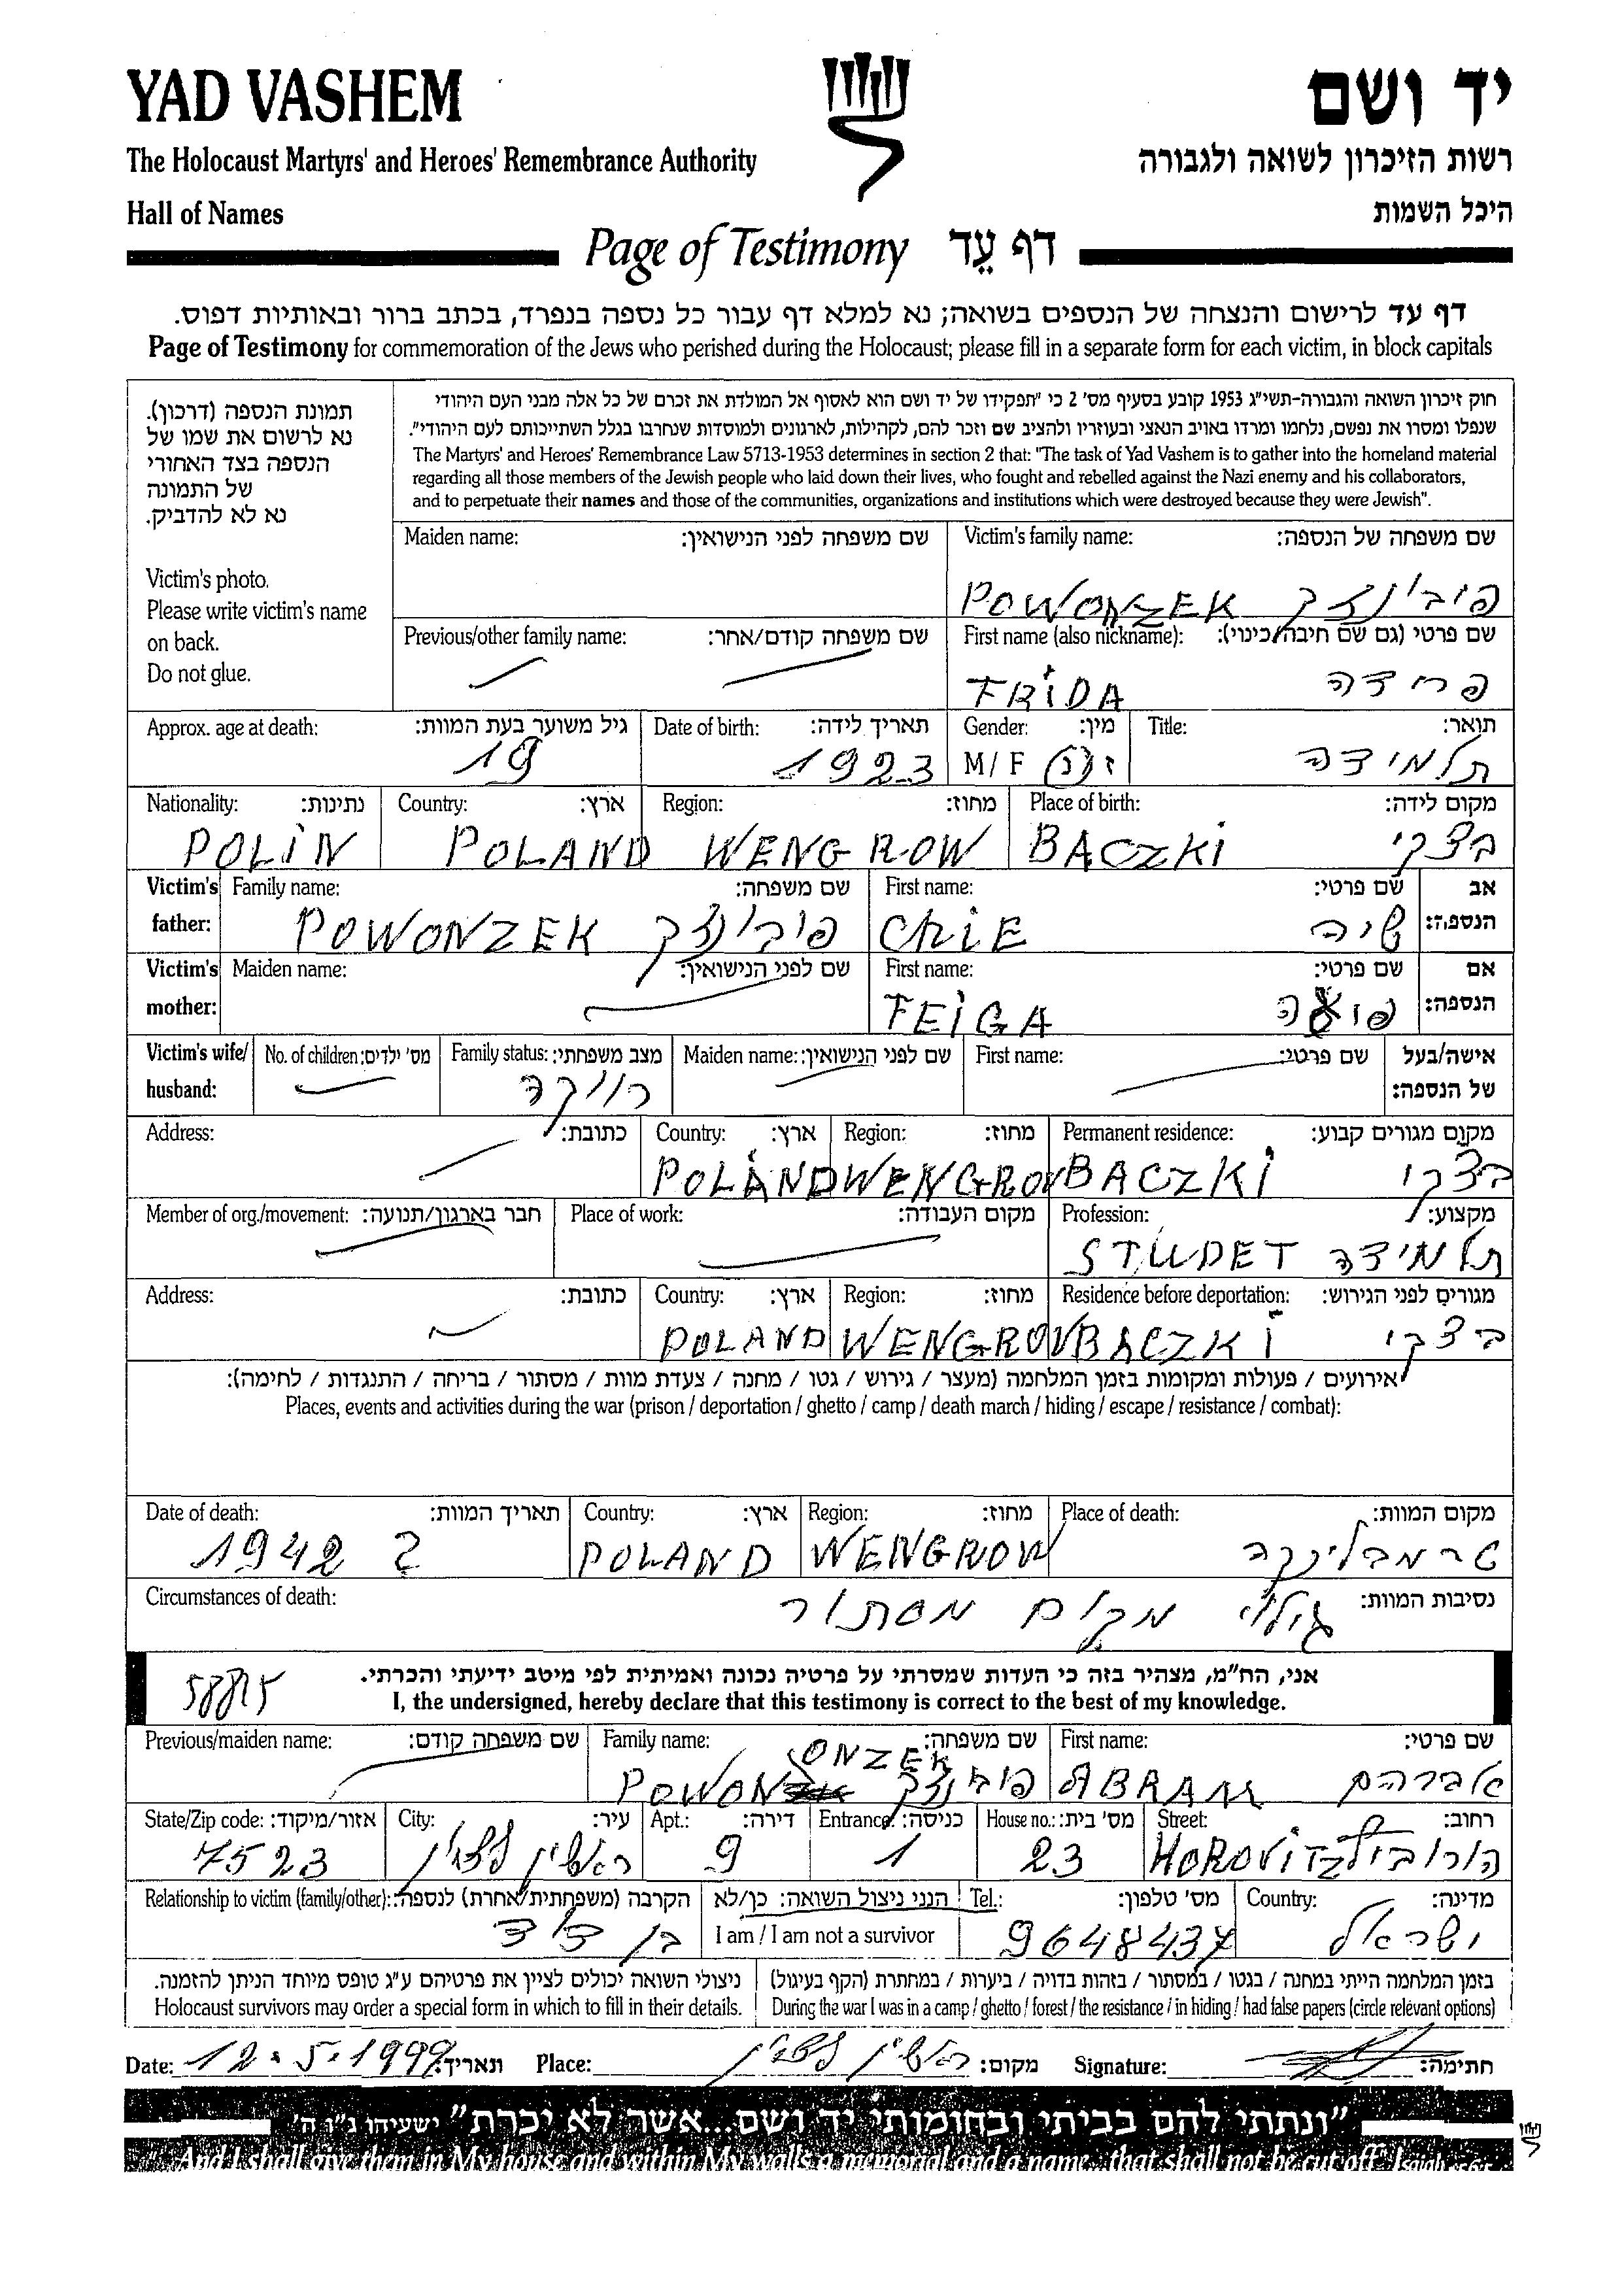 YAD VASHEM
יד ושם
The Holocaust Martyrs' and Heroes' Remembrance Authority
רשות הזיכרון לשואה ולגבורה
Hall of Names
היכל השמות
Page of Testimony דף עֵד
דף עד לרישום והנצחה של הנספים בשואה; נא למלא דף עבור כל נספה בנפרד, בכתב ברור ובאותיות דפוס.
Page of Testimony for commemoration of the Jews who perished during the Holocaust; please fill in a separate form for each victim, in block capitals
תמונת הנספה (דרכון).
נא לרשום את שמו של
הנספה בצד האחורי
של התמונה
נא לא להדביק.
Victim's photo.
Please write victim's name
on back.
Do not glue.
חוק זיכרון השואה והגבורה-תשי"ג 1953 קובע בסעיף מס' 2 כי "תפקידו של יד ושם הוא לאסוף אל המולדת את זכרם של כל אלה מבני העם היהודי
שנפלו ומסרו את נפשם, נלחמו ומרדו באויב הנאצי ובעוזריו ולהציב שם וזכר להם, לקהילות, לארגונים ולמוסדות שנחרבו בגלל השתייכותם לעם היהודי".
The Martyrs' and Heroes' Remembrance Law 5713-1953 determines in section 2 that: "The task of Yad Vashem is to gather into the homeland material
regarding all those members of the Jewish people who laid down their lives, who fought and rebelled against the Nazi enemy and his collaborators,
and to perpetuate their names and those of the communities, organizations and institutions which were destroyed because they were Jewish".
Maiden name: שם משפחה לפני הנישואין:
Victim's family name: שם משפחה של הנספה:
POWONZEK פובונזק
Previous/other family name: שם משפחה קודם/אחר:
First name (also nickname): שם פרטי (גם שם חיבה/כינוי):
FRIDA פרידה
Approx. age at death: גיל משוער בעת המוות:
19
Date of birth: תאריך לידה:
1923
Gender: מין:
M/F ז/נ
Title: תואר:
תלמידה
Nationality: נתינות:
POLIN
Country: ארץ:
POLAND
Region: מחוז:
WENGROW
Place of birth: מקום לידה:
BACZKI בצקי
Victim's father:
Family name: שם משפחה:
POWONZEK פובונזק
First name: שם פרטי:
CHIE שיה
אב הנספה:
Victim's mother:
Maiden name: שם לפני הנישואין:
First name: שם פרטי:
FEIGA
אם הנספה:
Victim's wife/ husband:
No. of children: מס' ילדים:
Family status: מצב משפחתי:
רווקה
Maiden name: שם לפני הנישואין:
First name: שם פרטי:
אישה/בעל של הנספה:
Address: כתובת:
Country: ארץ:
POLAND
Region: מחוז:
WENGROW
Permanent residence: מקום מגורים קבוע:
BACZKI בצקי
Member of org./movement: חבר בארגון/תנועה:
Place of work: מקום העבודה:
Profession: מקצוע:
STUDET תלמידה
Address: כתובת:
Country: ארץ:
POLAND
Region: מחוז:
WENGROW
Residence before deportation: מגורים לפני הגירוש:
BACZKI בצקי
אירועים / פעולות ומקומות בזמן המלחמה (מעצר / גירוש / גטו / מחנה / צעדת מוות / מסתור / בריחה / התנגדות / לחימה):
Places, events and activities during the war (prison / deportation / ghetto / camp / death march / hiding / escape / resistance / combat):
Date of death: תאריך המוות:
1942 ?
Country: ארץ:
POLAND
Region: מחוז:
WENGROW
Place of death: מקום המוות:
טרמבלינקה
Circumstances of death: נסיבות המוות:
גילוי מקום מסתור
אני, הח"מ, מצהיר בזה כי העדות שמסרתי על פרטיה נכונה ואמיתית לפי מיטב ידיעתי והכרתי.
I, the undersigned, hereby declare that this testimony is correct to the best of my knowledge.
Previous/maiden name: שם משפחה קודם:
Family name: שם משפחה:
ONZEK
POWON פובונזק
First name: שם פרטי:
ABRAM אברהם
State/Zip code: אזור/מיקוד:
7523
City: עיר:
ראשון לציון
Apt.: דירה:
9
Entrance: כניסה:
1
House no.: מס' בית:
23
Street: רחוב:
HOROVITZ הורוביץ
Relationship to victim (family/other): הקרבה (משפחתית/אחרת) לנספה:
בן דוד
הנני ניצול השואה: כן/לא
I am / I am not a survivor
Tel.: מס' טלפון:
9648437
Country: מדינה:
ישראל
ניצולי השואה יכולים לציין את פרטיהם ע"ג טופס מיוחד הניתן להזמנה.
Holocaust survivors may order a special form in which to fill in their details.
בזמן המלחמה הייתי במחנה / בגטו / במסתור / בזהות בדויה / ביערות / במחתרת (הקף בעיגול)
During the war I was in a camp / ghetto / forest / the resistance / in hiding / had false papers (circle relevant options)
Date: 12.5.1999 תאריך: Place: ראשון לציון מקום: Signature: חתימה:
"ונתתי להם בביתי ובחומותי יד ושם...אשר לא יכרת" ישעיהו נ"ו ה'
And I shall give them in My house and within My walls a memorial and a name...that shall not be cut off. Isaiah 56:5